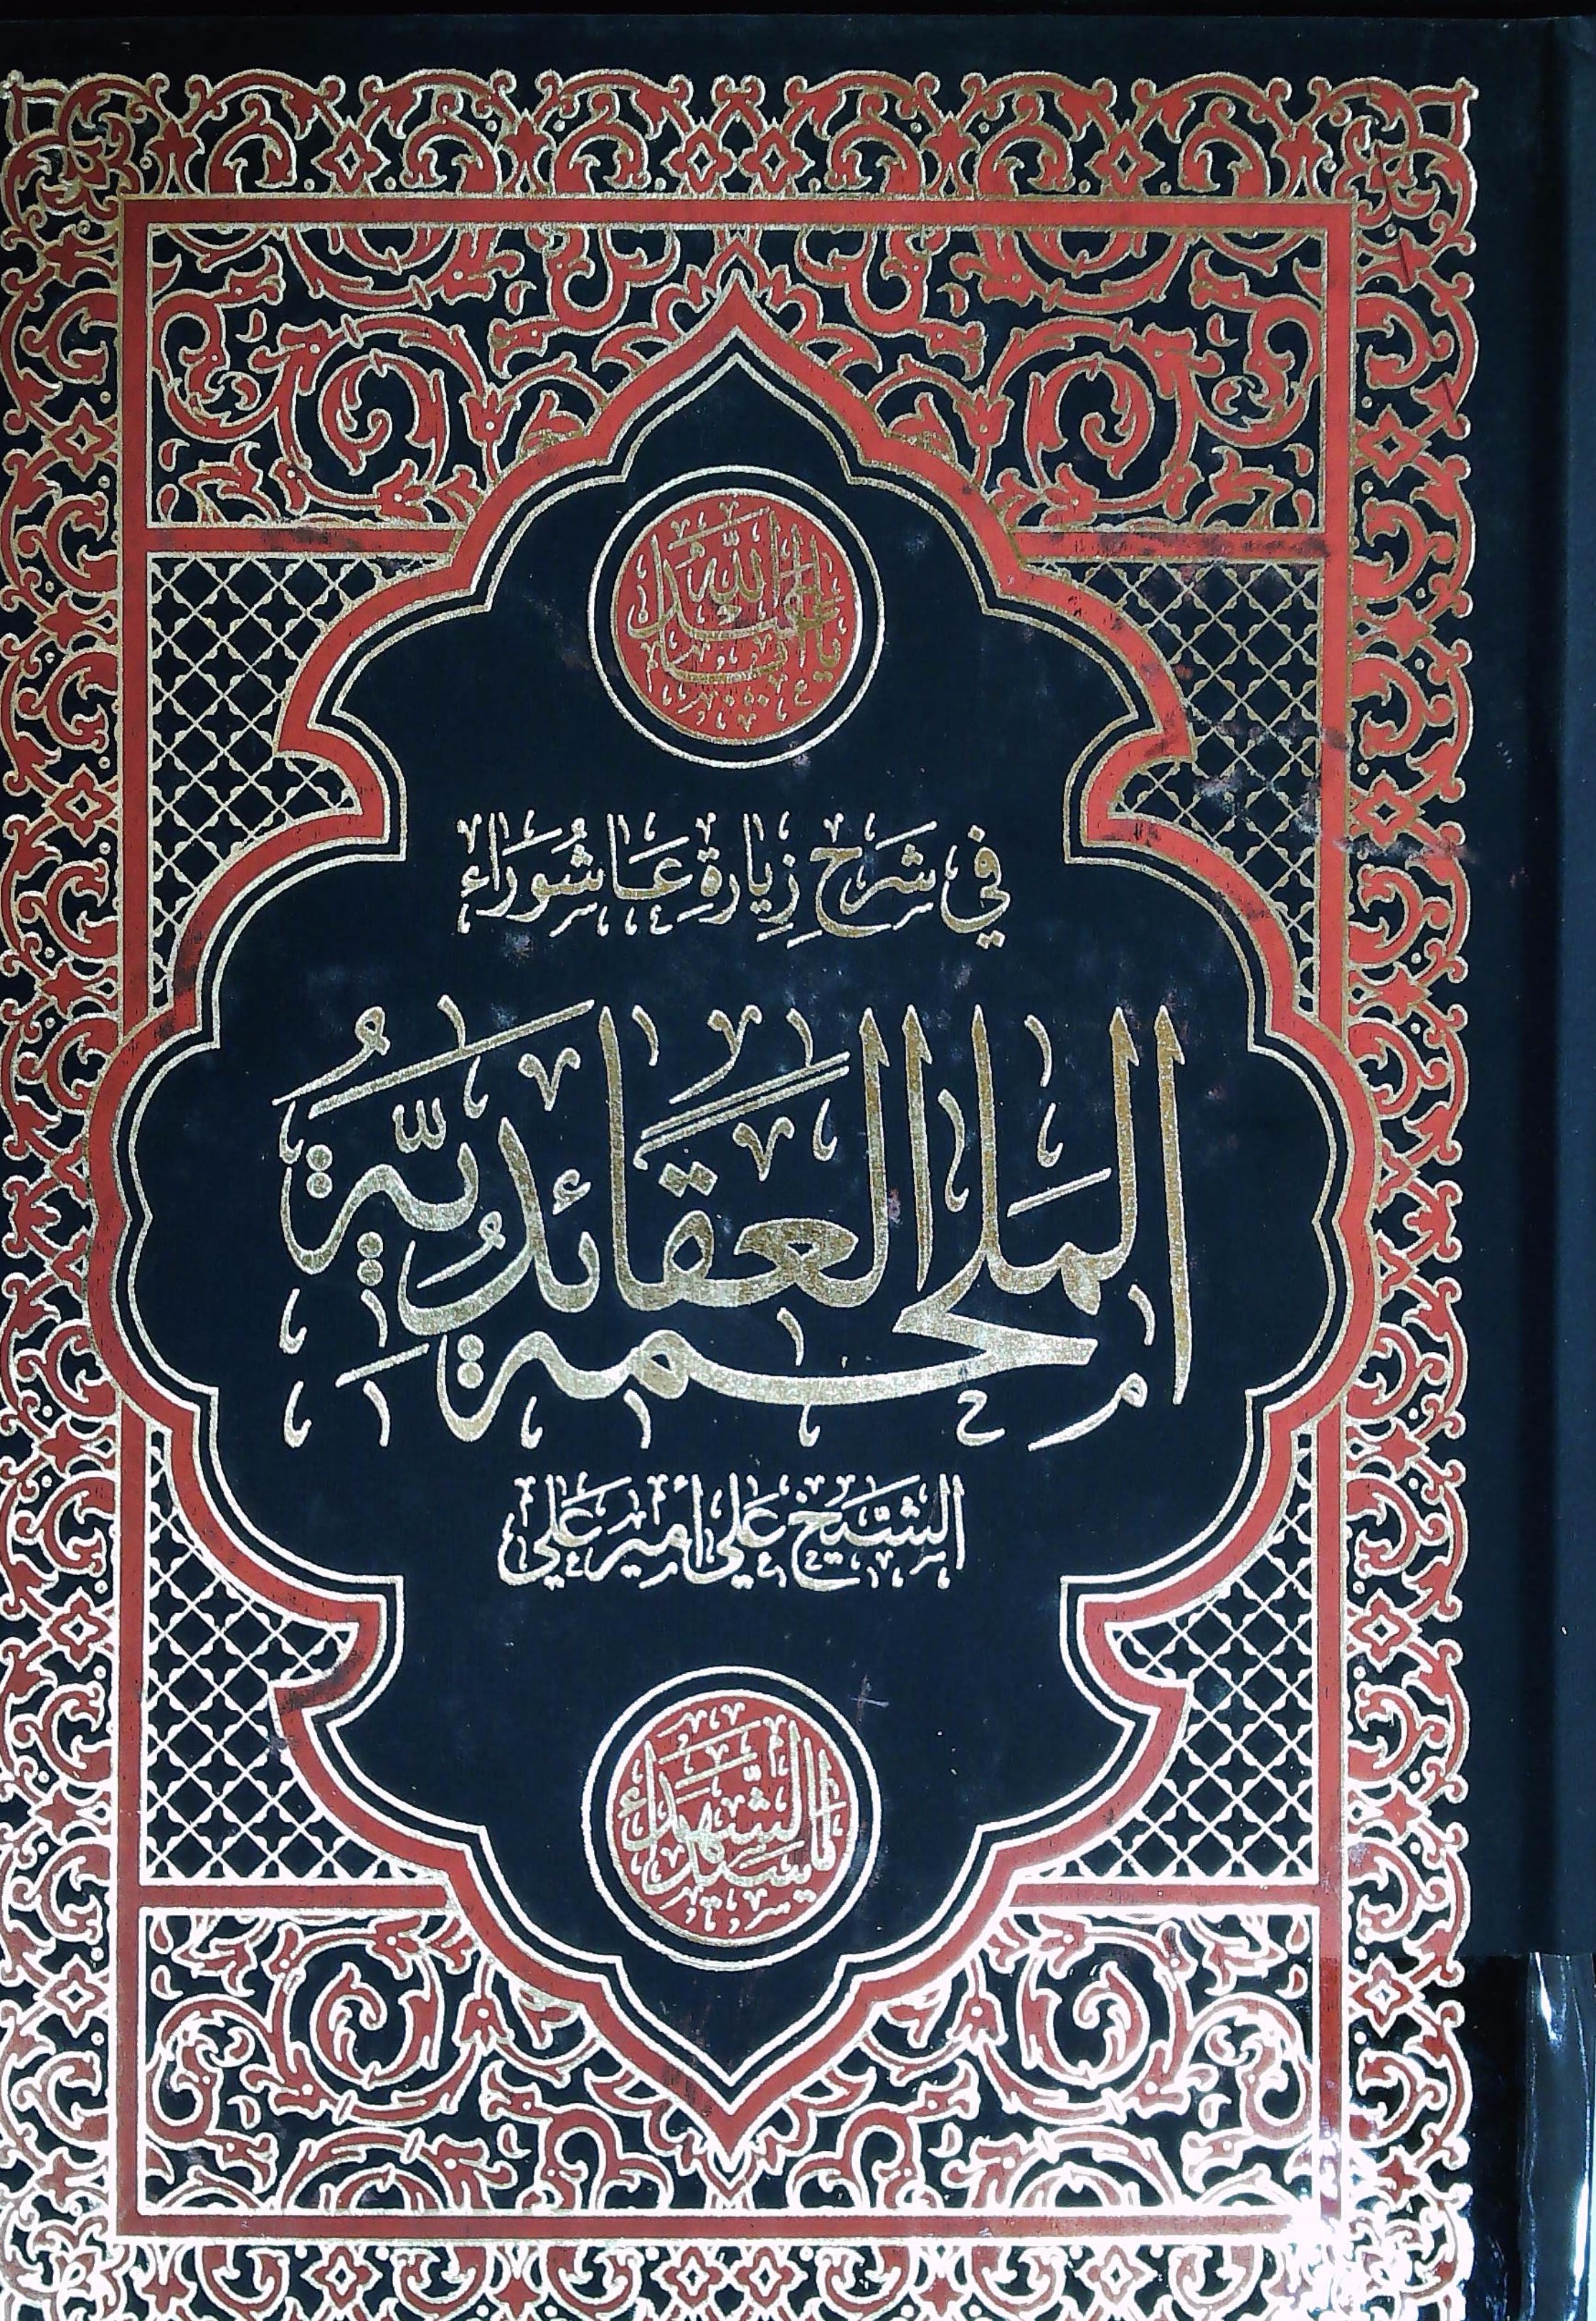 يا أبا عبد الله
في شَرحِ زِيارةِ عَاشُورَاء
الملحمة العقائديّة
الشيخ علي أمير علي
يا سيد الشهداء